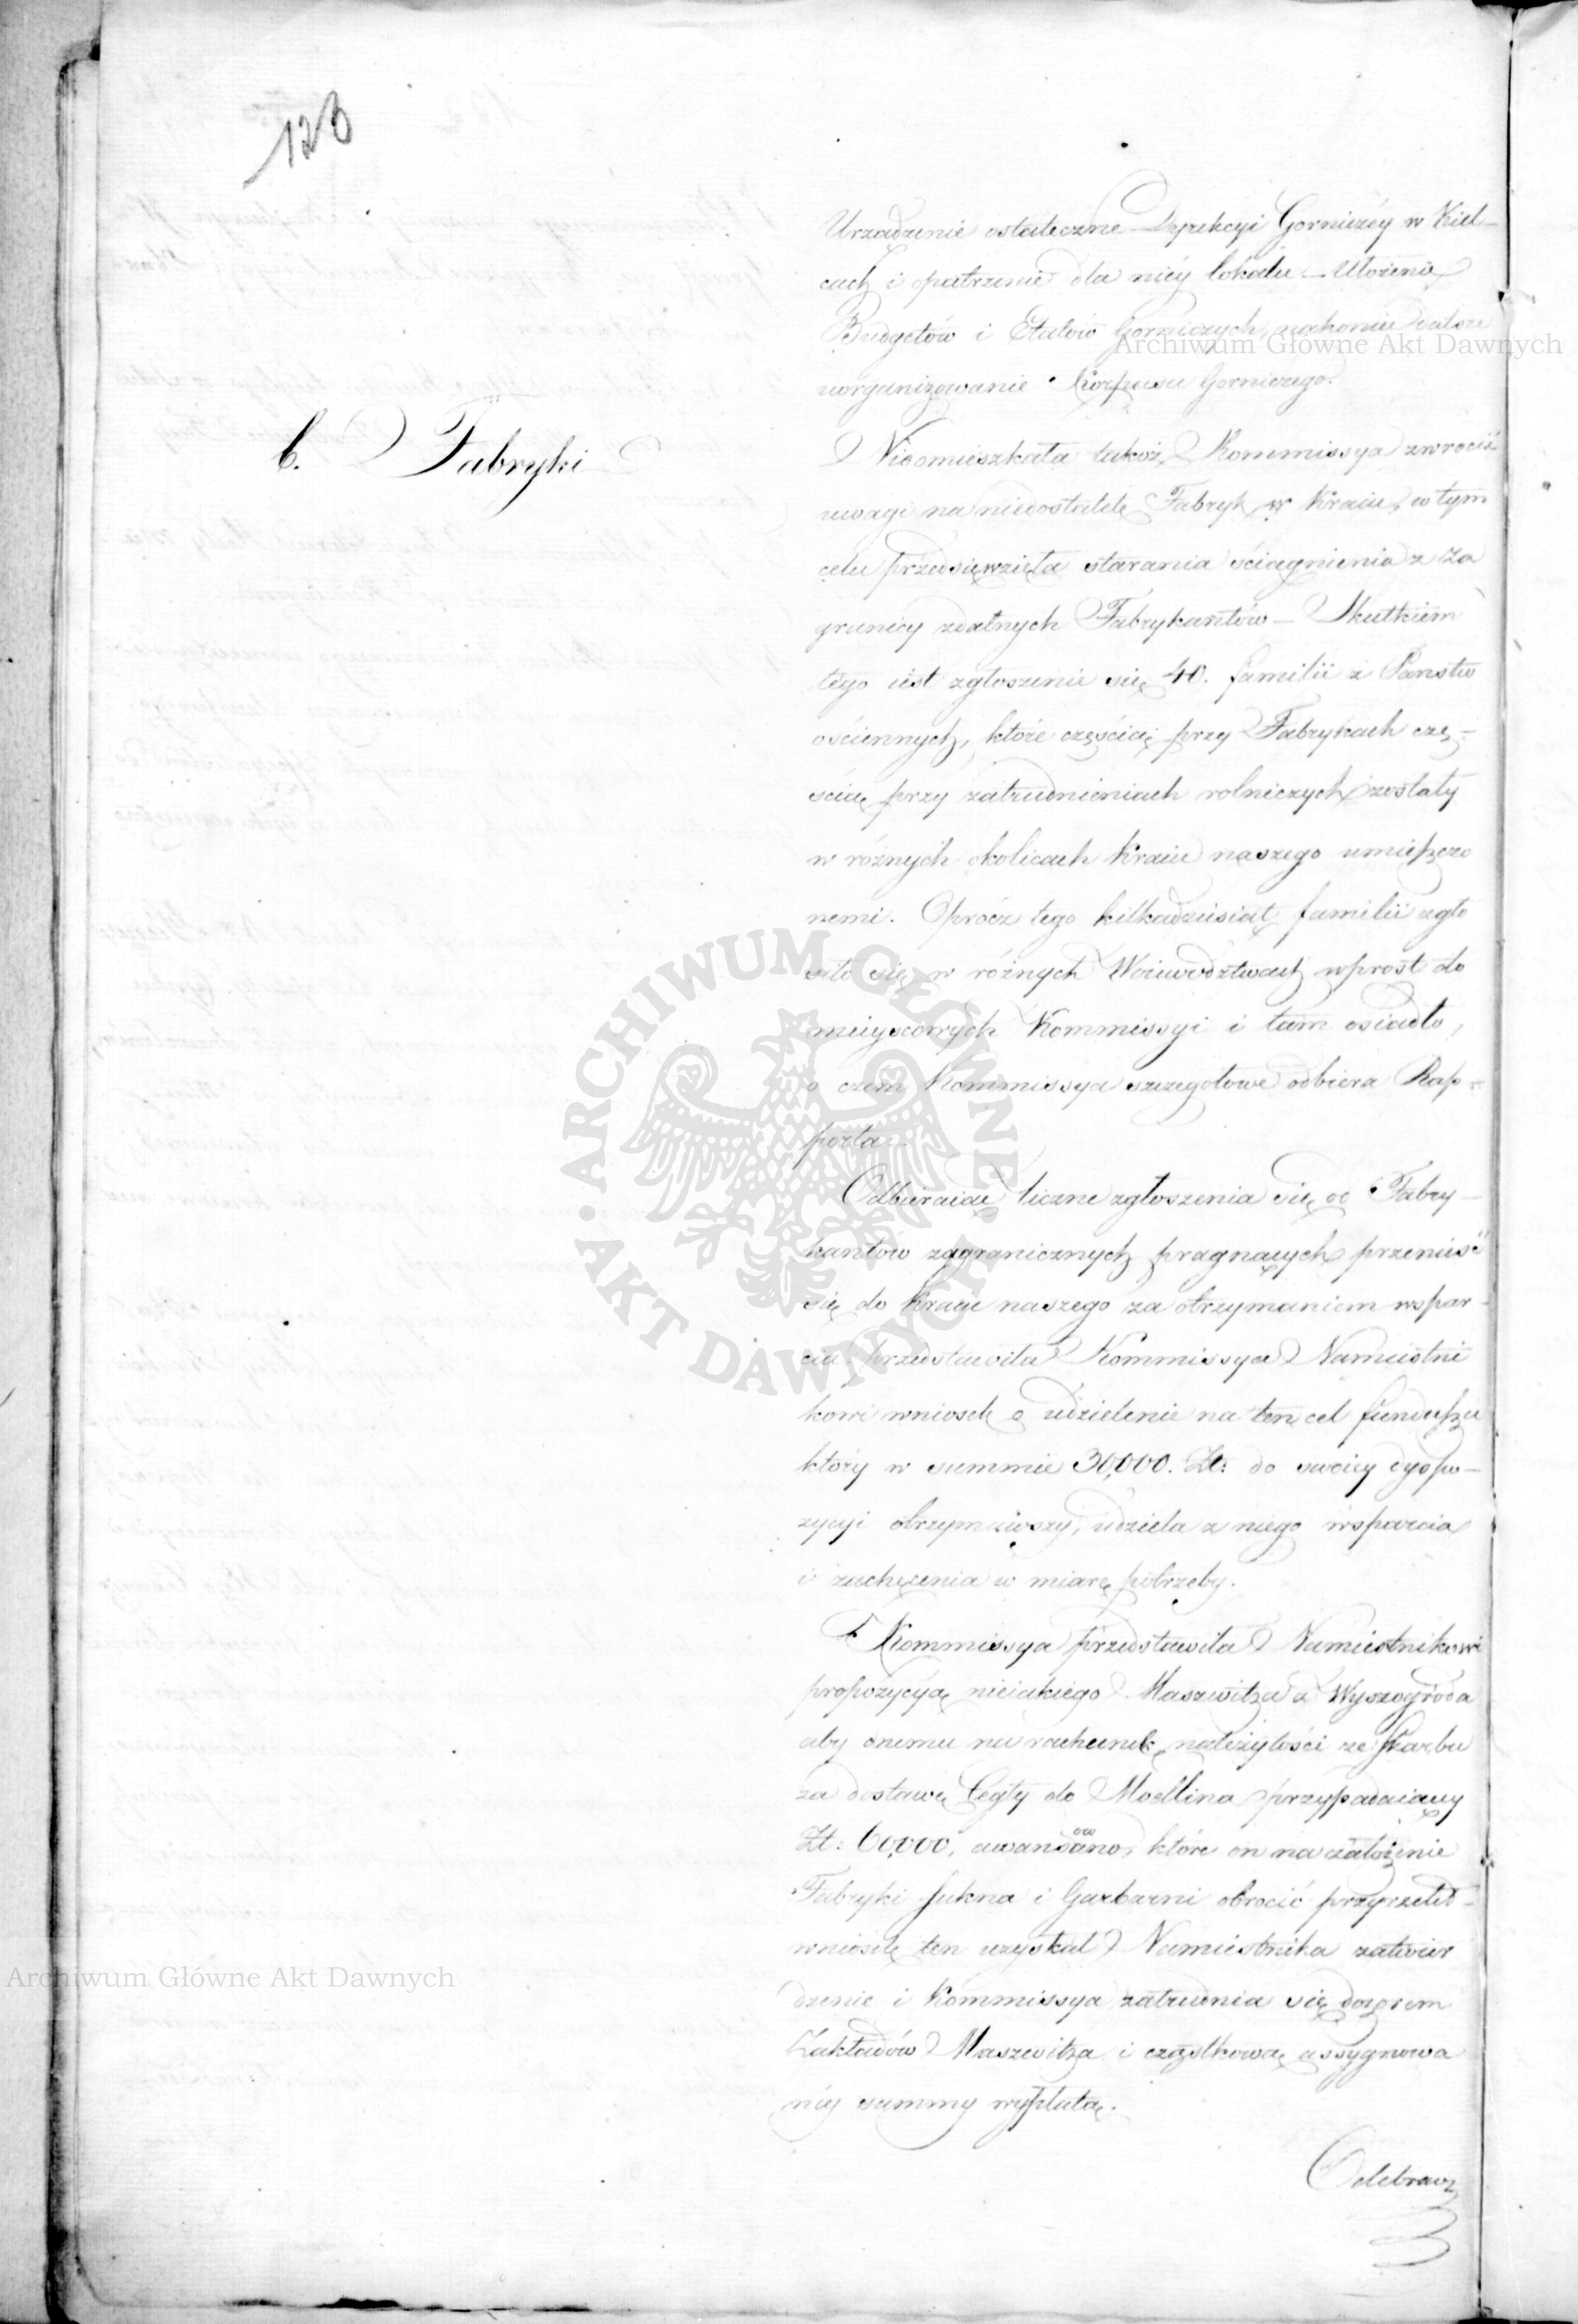 123
Urządzenie ostateczne Dyrekcyi Gorniczéy w Kiel-
cach i opatrzenie dla niéy lokalu – Ułożenie
Budgetów i Etatów Gorniczych, nakoniec dalsze
Archiwum Główne Akt Dawnych
uorganizowanie Korpusu Gorniczego.
b. Fabryki
Nieomieszkała takoż Kommissya zwrocić
uwagi na niedostatek Fabryk w Kraiu, w tym
celu przedsięwzięła starania ściągnienia z za
granicy zdatnych Fabrykantów – Skutkiem
tego iest zgłoszenie się 40. familii z Państw
ościennych, które częścią przy Fabrykach czę-
ścią przy zatrudnieniach rolniczych zostały
w różnych okolicach Kraiu naszego umieszczo
nemi. Oprócz tego kilkadziesiąt familii zgło
siło się w różnych Woiewodztwach wprost do
mieyscowych Kommissyi i tam osiadło,
o czem Kommissya szczegołowe odbiera Rap-
porta –
Odbieraiąc liczne zgłoszenia się od Fabry-
kantów zagranicznych pragnących przenieść
się do Kraiu naszego za otrzymaniem wspar-
cia, przedstawiła Kommissya Namiestni
kowi wniosek o udzielenie na ten cel funduszu
który w summie 30,000. Zł: do swoiey dyspo-
zycyi otrzymawszy, udziela z niego wsparcia
i zachęcenia w miarę potrzeby.
Kommissya przedstawiła Namiestnikowi
propozycyą nieiakiego Maszwitza z Wyszogroda
aby onemu na rachunek należytości ze skarbu
za dostawę Cegły do Modlina przypadaiący
Zł: 60,000, awansowano, które on na założenie
Fabryki Sukna i Garbarni obrocić przyrzekł –
wniosek ten uzyskał Namiestnika zatwier
dzenie i Kommissya zatrudnia się dozorem
Zakładów Maszwitza i cząstkową assygnowa
néy summy wypłatą.
Odebraw
ARCHIWUM GŁÓWNE · AKT DAWNYCH ·
Archiwum Główne Akt Dawnych